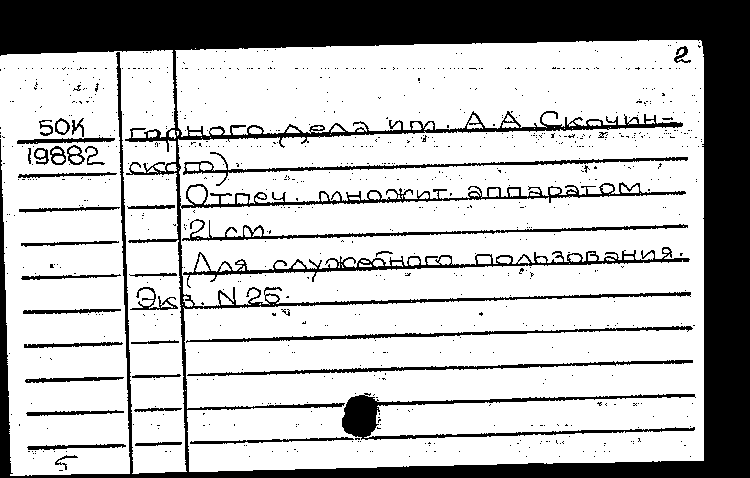 2
50К
19882
горного дела им. А.А. Скочин-
ского).
Отпеч. множит. аппаратом.
21 см.
Для служебного пользования.
Экз. N 25.
5